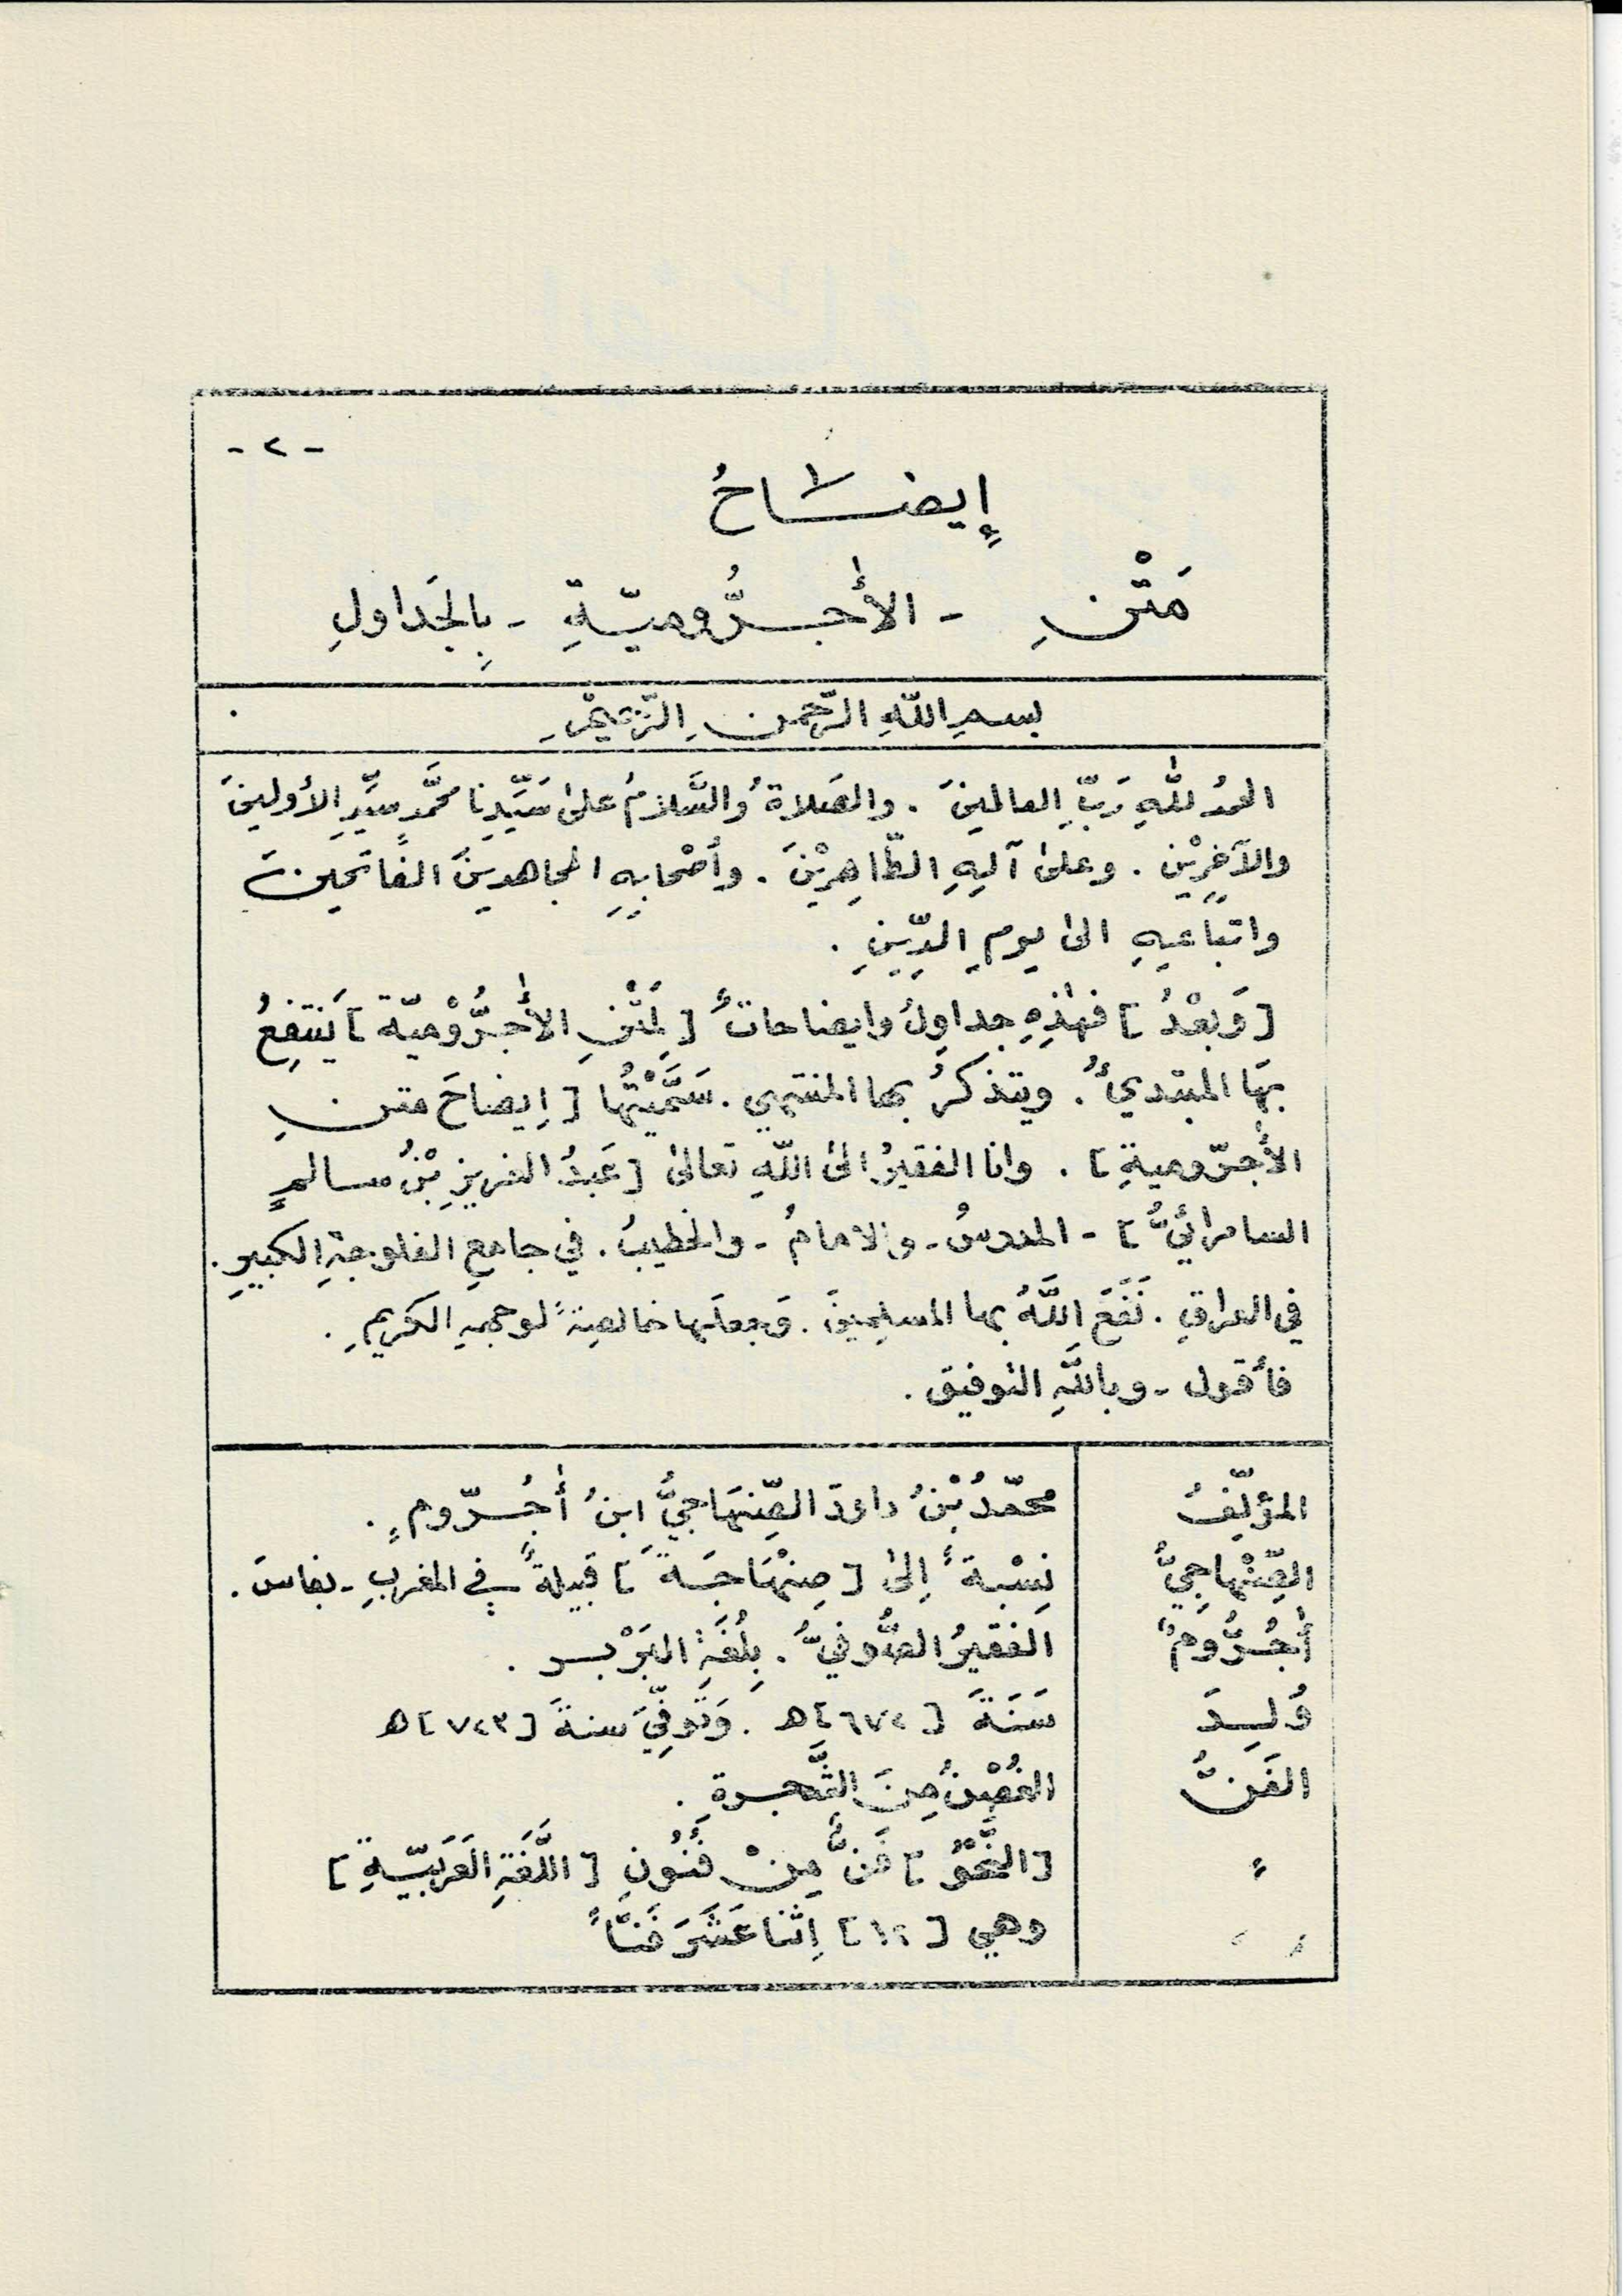 - ٢ -
إيضَاحُ
مَتْنِ - الأٰجُرُّوميّةِ - بِالجَداولِ
بسمِ اللّهِ الرّحمنِ الرّحيمِ
الحمدُ للّٰهِ رَبِّ العالمينَ . والصَلاةُ والسَّلامُ علىٰ سَيِّدِنا محمَّدٍ سيِّدِ الأولينَ
والآخِرِيْنَ . وعلىٰ آلِهِ الطّاهِرِيْنَ . وأصْحابِهِ المجاهدينَ الفَاتحينَ
واتباعِهِ الىٰ يومِ الدِّينِ .
[وَبعْدُ] فهٰذِهِ جداوِلُ وايضاحاتٌ [لِمَتْنِ الأٰجُرُّوْميّة] يَنتَفِعُ
بهَا المبتدئُ . ويتذكرُ بها المنتهي . سَمَّيْتُها [إيضاحَ متنِ
الأٰجرّوميةِ] . وانا الفقيرُ الىٰ اللّهِ تعالىٰ [عَبدُ العزيزِ بْنُ سالمٍ
السامرائيُّ] - المدرسُ - والامامُ - والخطيبُ . في جامعِ الفلوجةِ الكبيرِ .
في العراقِ . نَفَعَ اللَّهُ بها المسلِمينَ . وَجعلَها خالصةً لوجههِ الكريمِ .
فأقول - وباللَّهِ التوفيق .
المؤلِّفُ محمّدُ بْنُ داودَ الصِّنهَاجيُّ ابنُ أٰجُرّومٍ .
الصِّنْهاجِيُّ نِسْبةً إلىٰ [صِنْهَاجَةَ] قبيلةٌ في المغربِ - بفاسَ .
أٰجُرُّومٌ الفقيرُ الصُّوفيُّ . بِلُغَةِ البَرْبرِ .
وُلِدَ سَنَةَ [٦٧٢] هـ . وَتُوفِّيَ سنةَ [٧٢٣] هـ
الفَنُّ الغُصْنُ مِنَ الشَّجرةِ .
ً [النَّحْوُ] فَنٌّ مِنْ فُنُونِ [اللُّغَةِ العَرَبيّةِ]
ً وهي [١٢] إثنا عَشَرَ فَنّاً